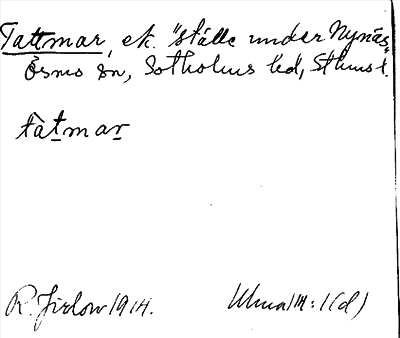 Tattmar, ek. "ställe under Nynäs",
Ösmo sn, Sotholms hd, Sthms l.
tàt̲mar̲
R. Jirlow 1914. Uhma 14:1(d)